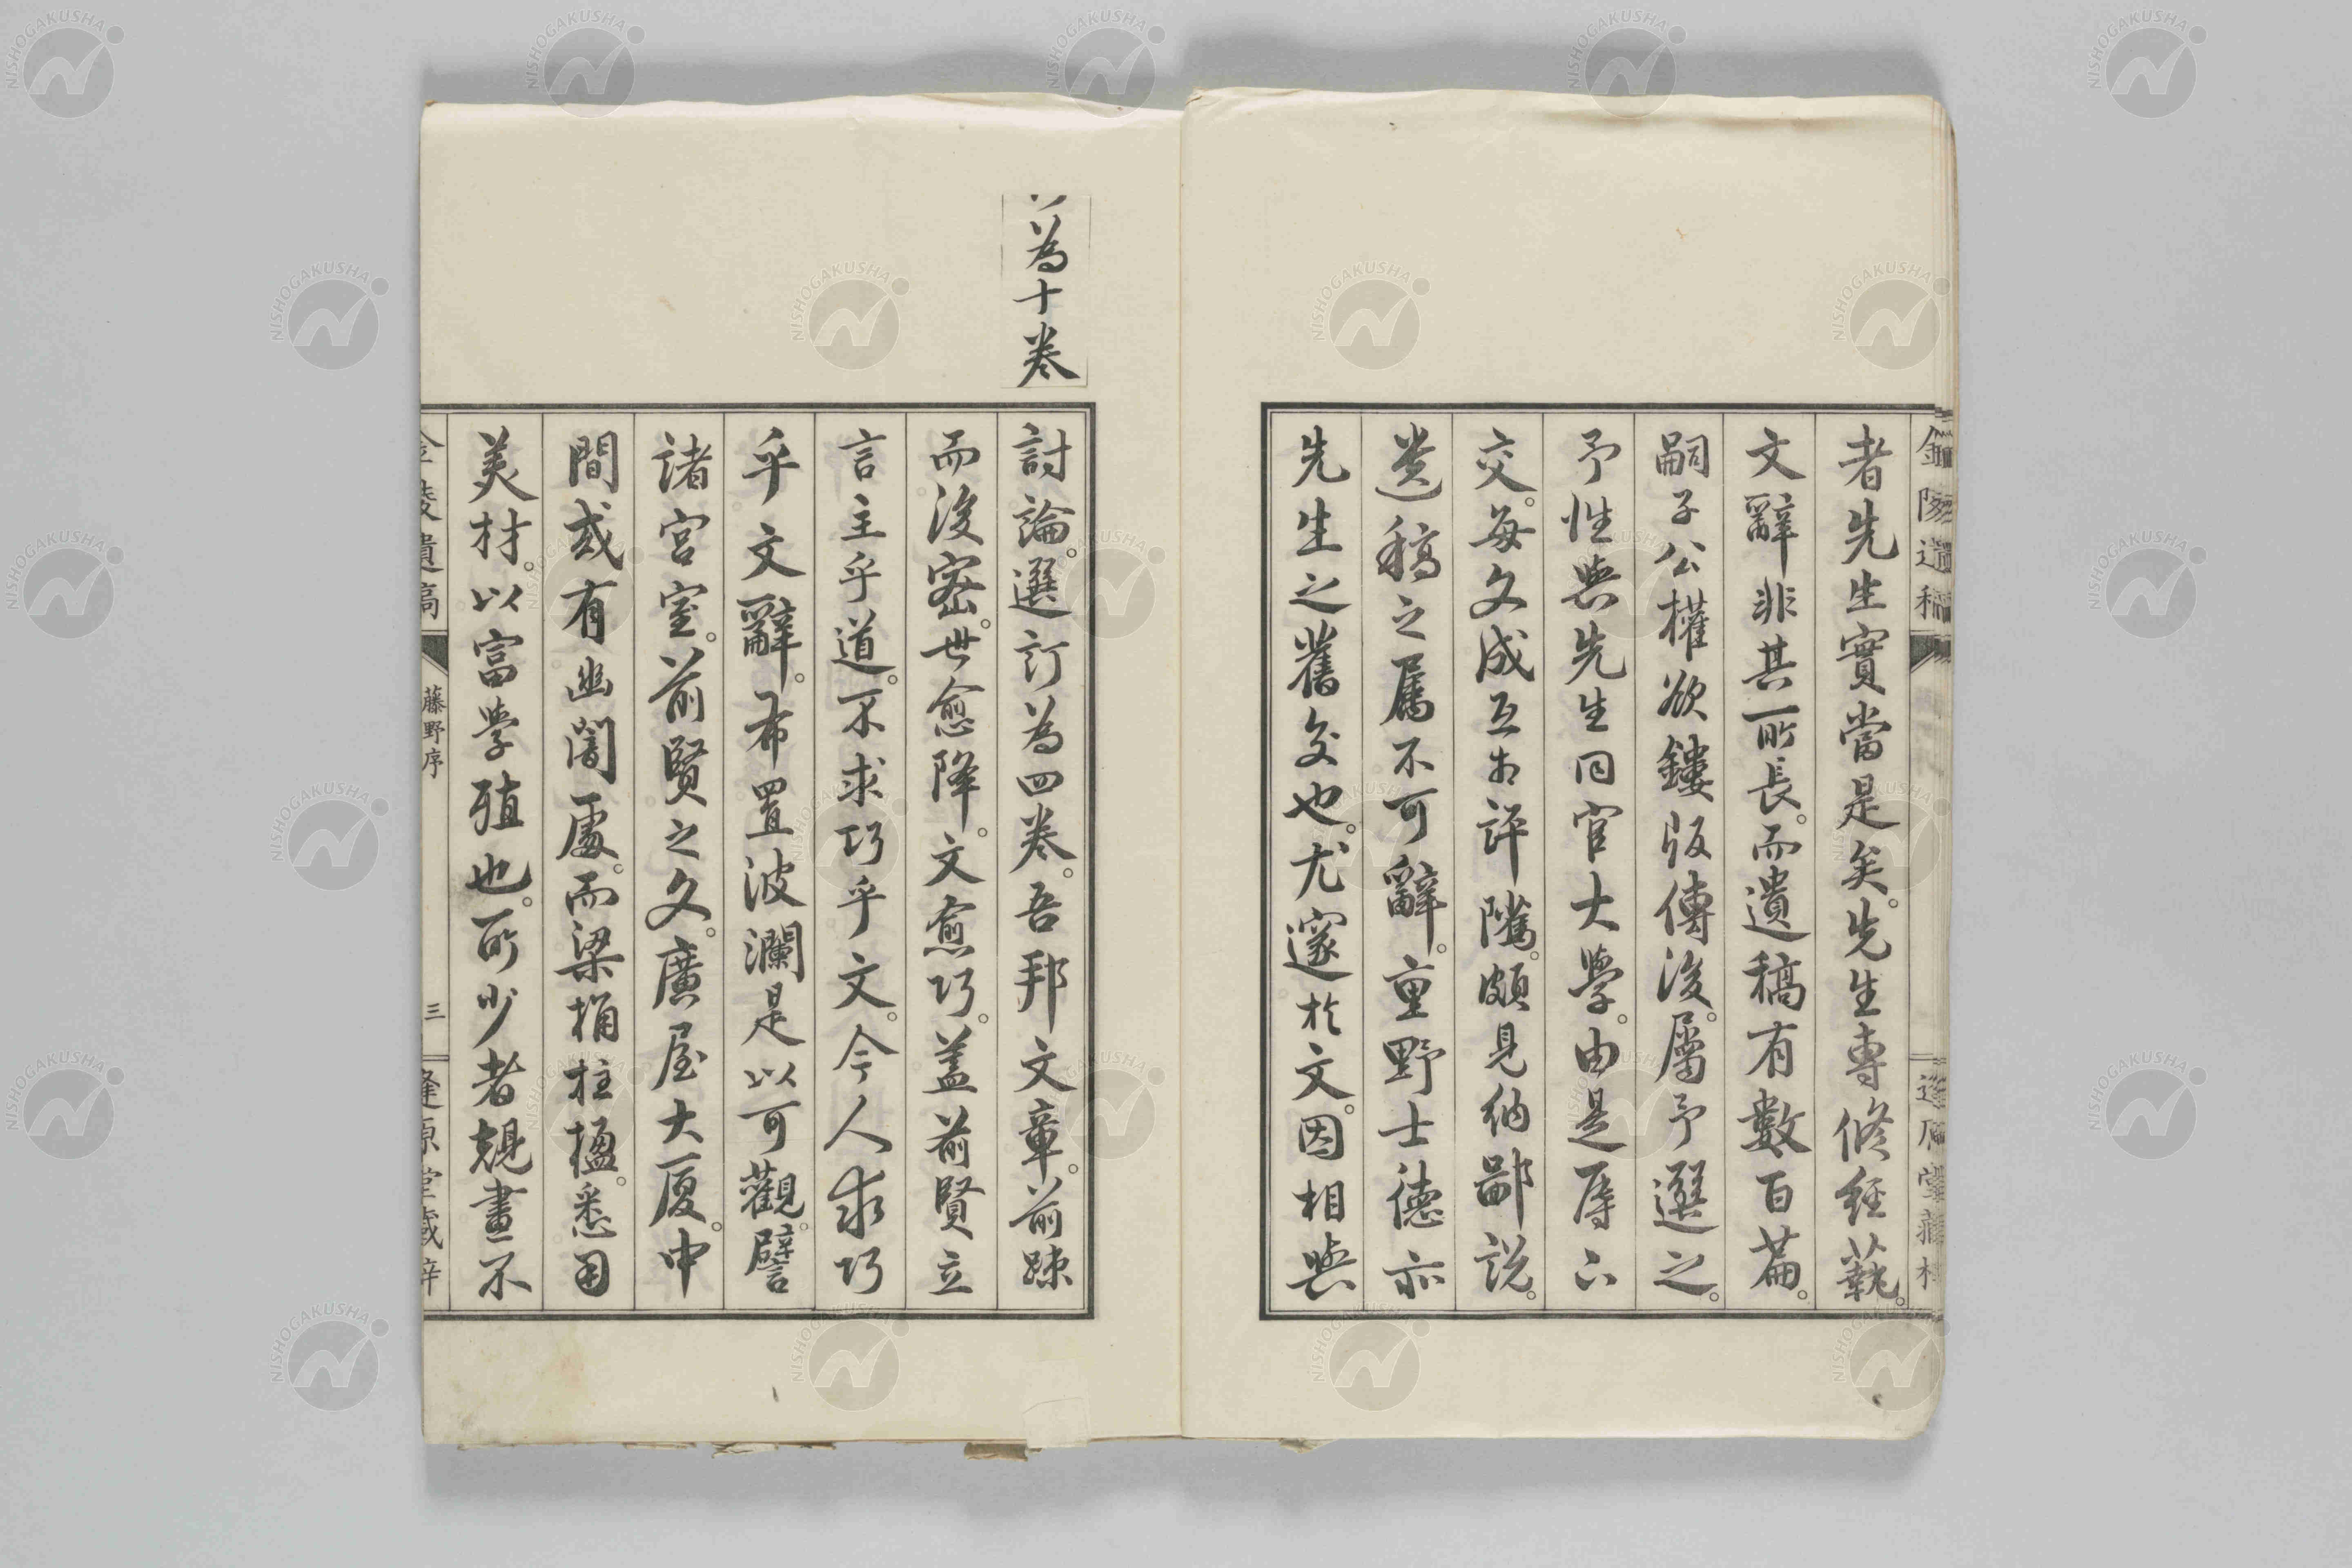 者先生實當是矣。先生專脩經藝。
文辭非其所長。而遺稿有數百篇。
嗣子公權欲鏤版傳後。屬予選之。
予性與先生同官大學。由是辱
交。每文成互相評隲。頗見納鄙說。
遺稿之屬不可辭。重野士德亦
先生之舊交也。尤邃於文。因相與
為十卷
討論。選訂為四卷。吾邦文章。前踈
而後密。世愈降。文愈巧。蓋前賢立
言主乎道。不求巧乎文。今人求巧
乎文辭。布置波瀾是以可觀。譬
諸宮室。前賢之文。廣屋大廈。中
間或有幽闇處。而梁桷柱楹。悉用
美材。以富學殖也。所少者規畫不
金陵遺稿
藤野序
三
逢原堂藏梓
NISHOGAKUSHA